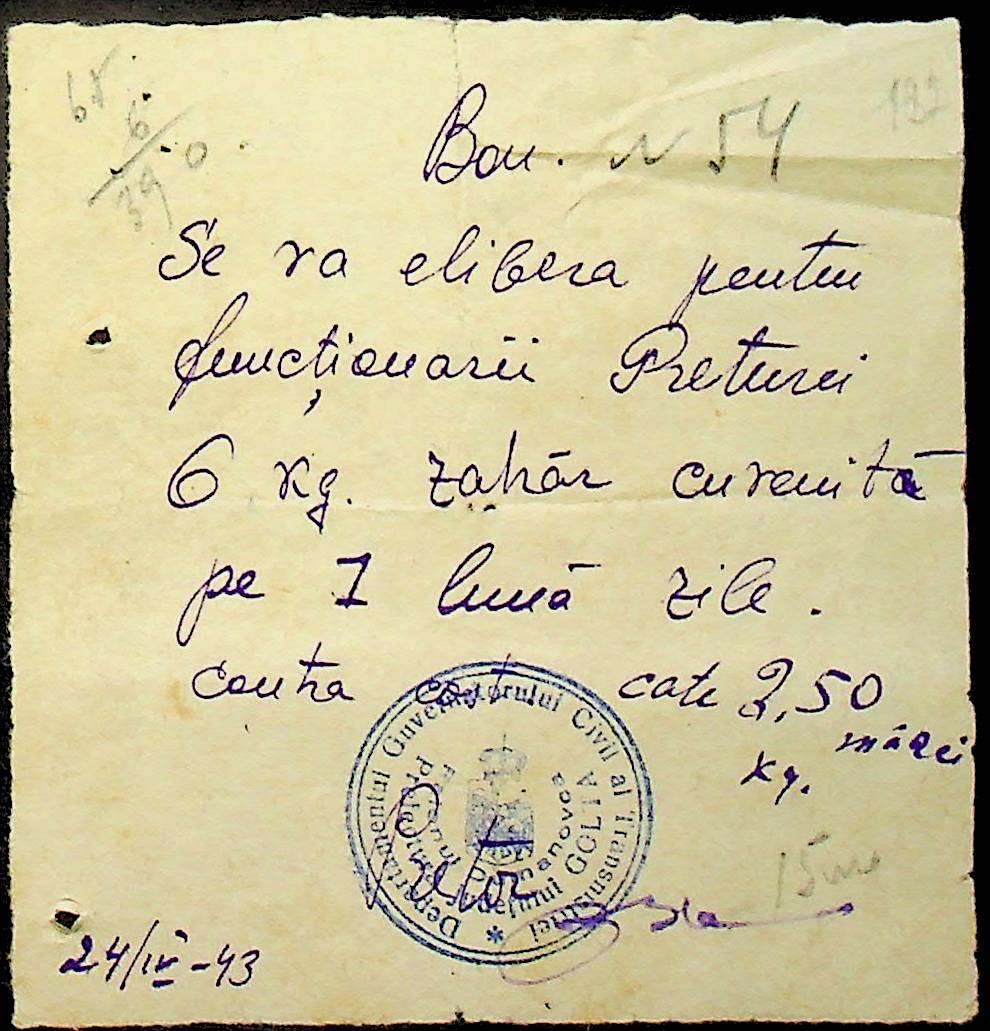 68
6
39 0
192
Bon. N 54
Se va elibera pentru
funcționarii Preturei
6 kg. zahăr cuvenită
pe 1 lună zile.
contra cost cate 2,50
mărci
kg.
Departamentul Guvernatorului Civil al Transnistriei
Prefectura Județului GOLTA
Raionul Domanovca
Pretor
15 m
24/IV-43